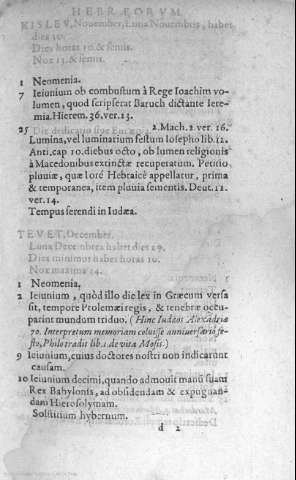 HEBRAEORVM
KISLEV, Nouember, Luna Nouembris, habet
dies 30.
Dies horas 10. & semis.
Nox 13. & semis.
1 Neomenia.
7 Ieiunium ob combustum à Rege Ioachim vo-
lumen, quod scripserat Baruch dictante Iere-
mia. Hierem. 36. ver. 13.
25 Die dedicatio siue Encænia. 2. Mach. 2. ver. 16.
Lumina, vel luminarium festum Iosepho lib. 12.
Anti. cap. 10. diebus octo, ob lumen religionis
à Macedonibus extinctæ recuperatum. Petitio
pluuiæ, quæ Ioré Hebraicè appellatur, prima
& temporanea, item pluuia sementis. Deut. 11.
ver. 14.
Tempus serendi in Iudæa.
TEVET, December.
Luna Decembrea habet dies 29.
Dies minimus habet horas 10.
Nox maxima 14.
1 Neomenia,
2 Ieiunium, quòd illo die lex in Græcum versa
sit, tempore Ptolemæi regis, & tenebræ occu-
parint mundum triduo. (Hinc Iudæos Alexādriæ
70. Interpretum memoriam coluisse anniuersario fe-
sto, Philo tradit lib. 2. de vita Mosis.)
9 Ieiunium, cuius doctores nostri non indicarunt
causam.
10 Ieiunium decimi, quando admouit manū suam
Rex Babylonis, ad obsidendam & expugnan-
dam Hierosolymam.
Solstitium hybernum.
d 2